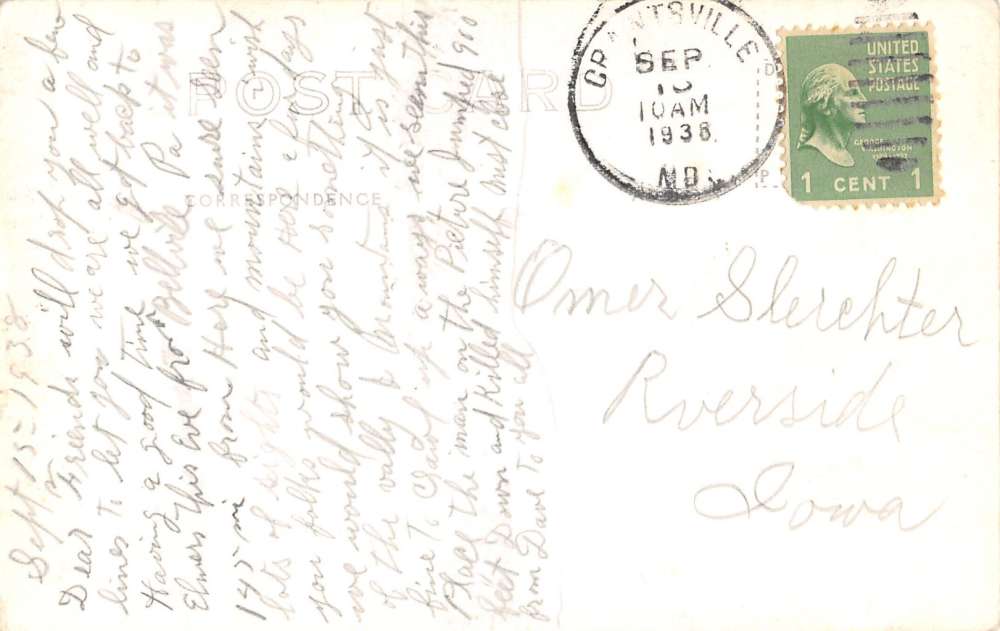 POST CARD
CORRESPONDENCE
GRANTSVILLE
SEP
10AM
1938
MD.
UNITED
STATES
POSTAGE
GEORGE
WASHINGTON
1 CENT 1
Sept 15-1938
Dear Friends will drop you a few
lines to let you we are all well and
Having a good time we got back to
Elmers this Eve from Bellvile Pa it was
145 mi from Here we seen
lots of sights and mountains wish
you folks would be Here a few days
we would show you something
of the vally & Mountains it is just
fine To climb up we seen this
Place the man on the Picture Jumped 900
feet Down and Killed himself Must close
from Dave to you all
Omer Slerchter
Rverside
Iowa